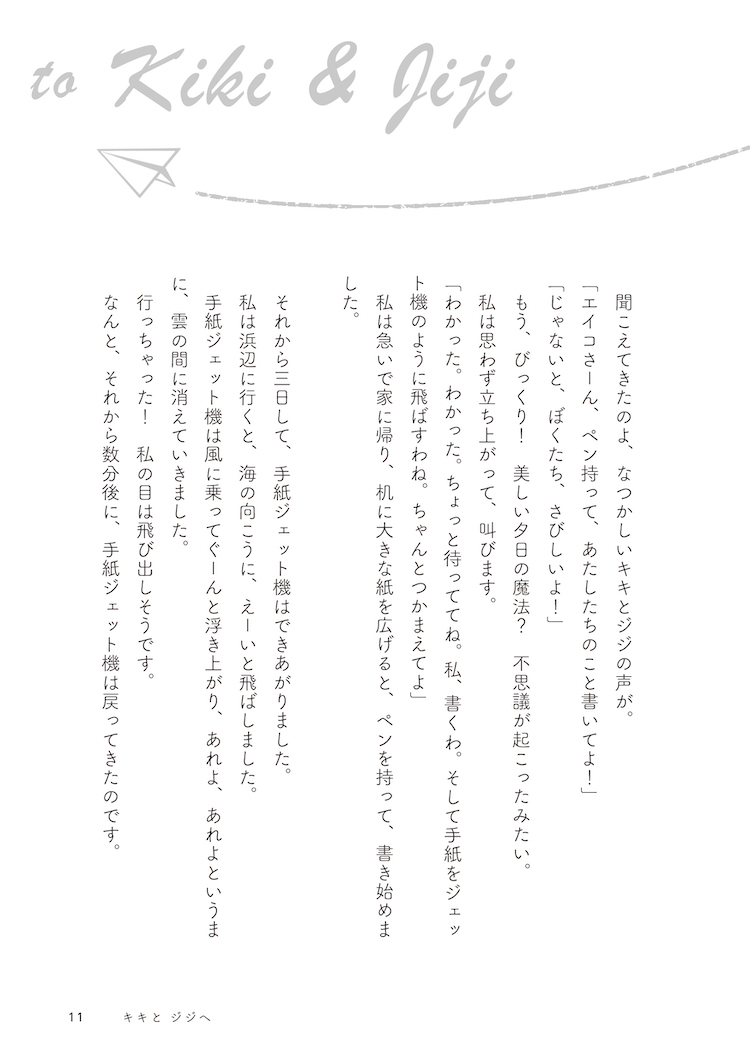 to Kiki & Jiji
聞こえてきたのよ、なつかしいキキとジジの声が。
「エイコさーん、ペン持って、あたしたちのこと書いてよ!」
「じゃないと、ぼくたち、さびしいよ!」
もう、びっくり!　美しい夕日の魔法?　不思議が起こったみたい。
私は思わず立ち上がって、叫びます。
「わかった。わかった。ちょっと待っててね。私、書くわ。そして手紙をジェッ
ト機のように飛ばすわね。ちゃんとつかまえてよ」
私は急いで家に帰り、机に大きな紙を広げると、ペンを持って、書き始めま
した。
それから三日して、手紙ジェット機はできあがりました。
私は浜辺に行くと、海の向こうに、えーいと飛ばしました。
手紙ジェット機は風に乗ってぐーんと浮き上がり、あれよ、あれよというま
に、雲の間に消えていきました。
行っちゃった!　私の目は飛び出しそうです。
なんと、それから数分後に、手紙ジェット機は戻ってきたのです。
11　キキと ジジへ